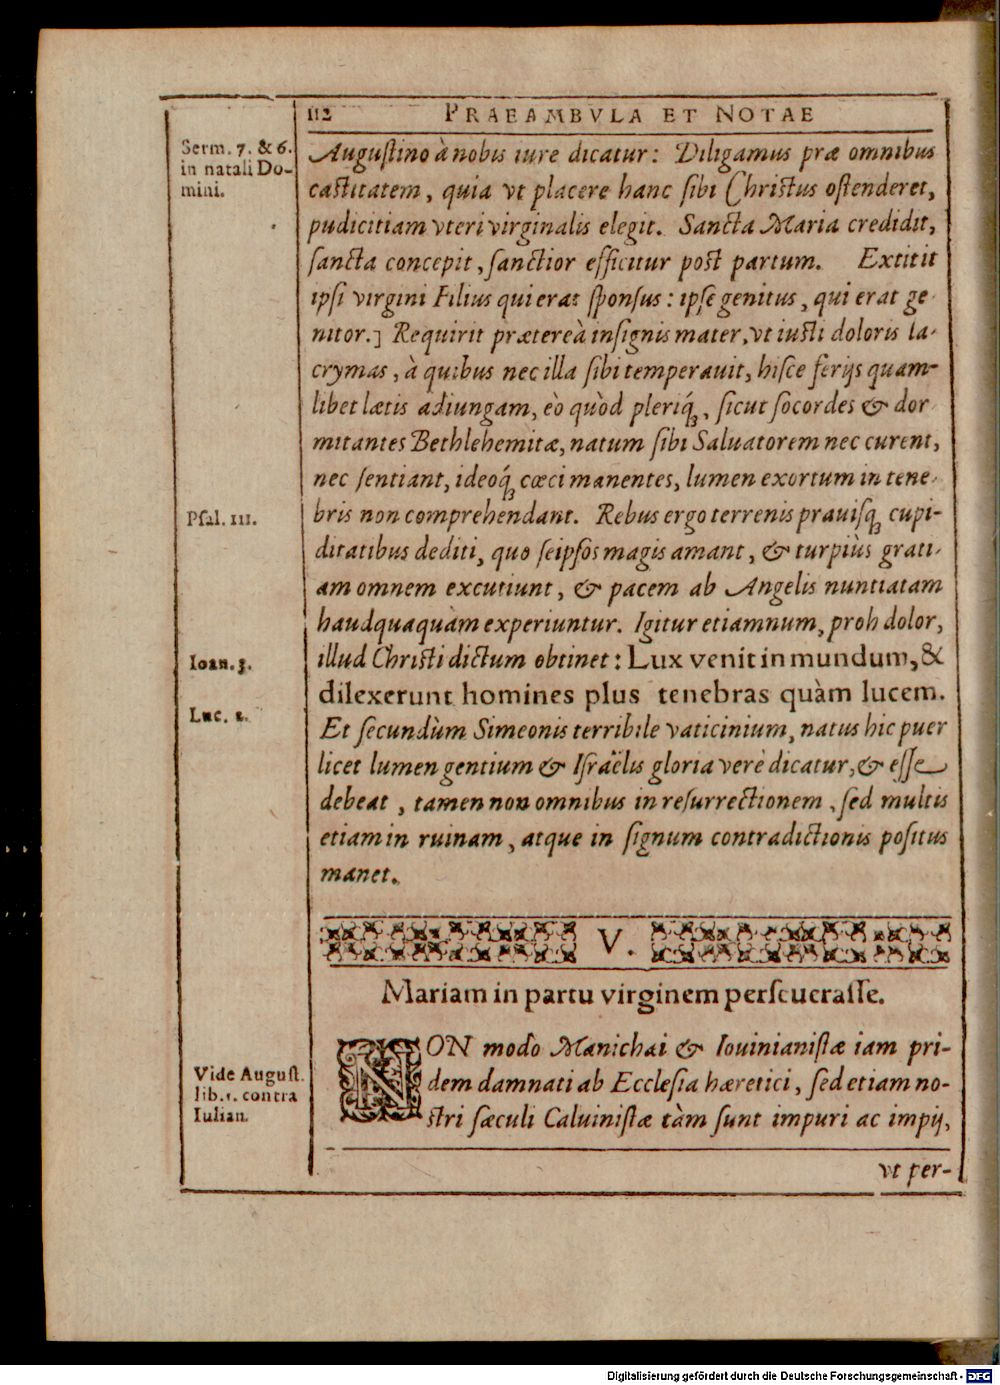 112 PRAEAMBVLA ET NOTAE
Serm. 7. & 6.
in natali Do-
mini.
Auguſtino à nobis iure dicatur: Diligamus præ omnibus
caſtitatem, quia vt placere hanc ſibi Chriſtus oſtenderet,
pudicitiam vteri virginalis elegit. Sancta Maria credidit,
ſancta concepit, ſanctior efficitur poſt partum. Extitit
ipſi virgini Filius qui erat ſponſus: ipſe genitus, qui erat ge-
nitor.] Requirit prætereà inſignis mater, vt iuſti doloris la-
crymas, à quibus nec illa ſibi temperauit, hiſce ferijs quam-
libet lætis adiungam, eò quòd pleriq́;, ſicut ſocordes & dor-
mitantes Bethlehemitæ, natum ſibi Saluatorem nec curent,
nec ſentiant, ideoq́; cæci manentes, lumen exortum in tene-
Pſal. 111.
bris non comprehendant. Rebus ergo terrenis prauiſq; cupi-
ditatibus dediti, quo ſeipſos magis amant, & turpiùs grati-
am omnem excutiunt, & pacem ab Angelis nuntiatam
haudquaquàm experiuntur. Igitur etiamnum, proh dolor,
Ioan. 3.
illud Chriſti dictum obtinet: Lux venit in mundum, &
dilexerunt homines plus tenebras quàm lucem.
Luc. 2.
Et ſecundùm Simeonis terribile vaticinium, natus hic puer
licet lumen gentium & Iſraëlis gloria verè dicatur, & eſſe
debeat, tamen non omnibus in reſurrectionem, ſed multis
etiam in ruinam, atque in ſignum contradictionis poſitus
manet.
V.
Mariam in partu virginem perſeueraſſe.
Vide Auguſt.
lib.1. contra
Iulian.
NON modò Manichæi & Iouinianiſtæ iam pri-
dem damnati ab Eccleſia hæretici, ſed etiam no-
ſtri ſæculi Caluiniſtæ tàm ſunt impuri ac impij,
vt per-
Digitalisierung gefördert durch die Deutsche Forschungsgemeinschaft - DFG